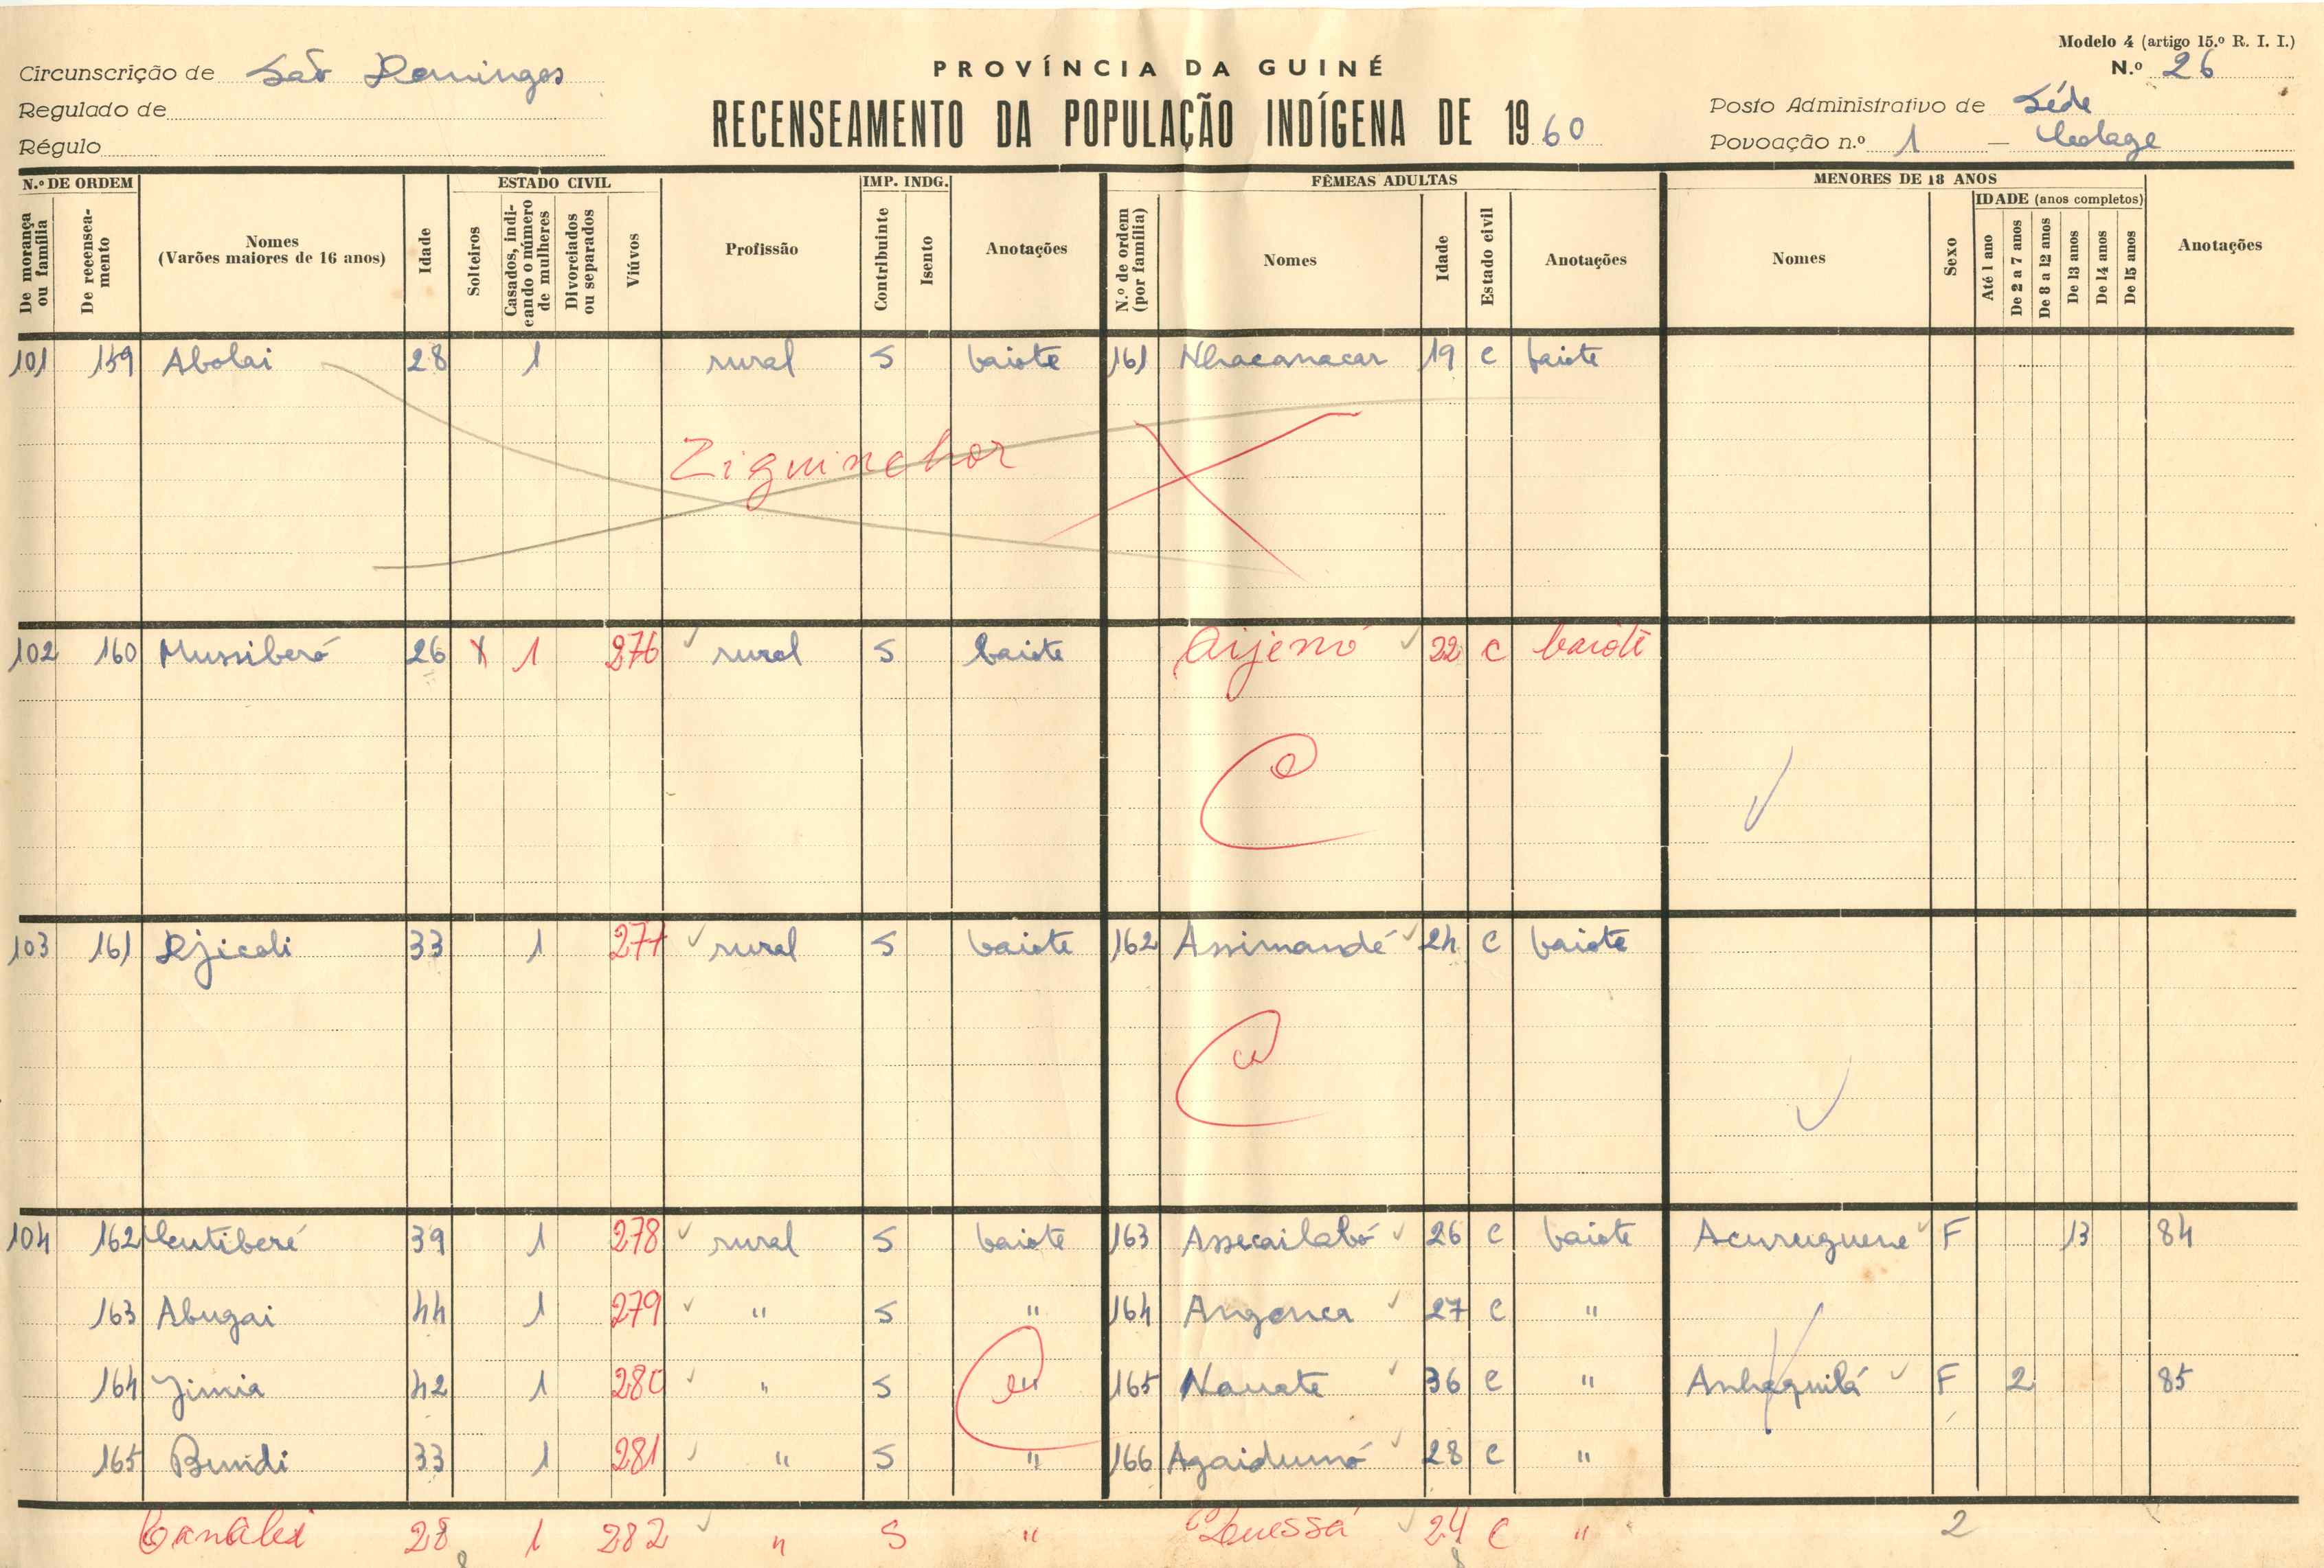 Modelo 4 (artigo 15.º R. I. I.)
Circunscrição de São Domingos
PROVÍNCIA DA GUINÉ
N.º 26
Regulado de
RECENSEAMENTO DA POPULAÇÃO INDÍGENA DE 1960
Posto Administrativo de Séde
Régulo
Povoação n.º 1 —
N.º DE ORDEM
ESTADO CIVIL
IMP. INDG.
FÊMEAS ADULTAS
MENORES DE 18 ANOS
IDADE (anos completos)
De morança ou família
De recenseamento
Nomes
(Varões maiores de 16 anos)
Idade
Solteiros
Casados, indicando o número de mulheres
Divorciados ou separados
Viúvos
Profissão
Contribuinte
Isento
Anotações
N.º de ordem (por família)
Nomes
Idade
Estado civil
Anotações
Nomes
Sexo
Até 1 ano
De 2 a 7 anos
De 8 a 12 anos
De 13 anos
De 14 anos
De 15 anos
Anotações
101 159 Abolai 28 1 rural S baiote 161 Nhacanacar 19 C baiote
Ziguinchor
102 160 Mussiberó 26 X 1 276 rural S baiote Aijenó 22 C baiote
C
103 161 Djicoli 33 1 277 rural S baiote 162 Assimandé 24 C baiote
C
104 162 Cutiberé 39 1 278 rural S baiote 163 Assecailabó 26 C baiote Acuruguene F 13 84
163 Abugai 44 1 279 " S " 164 Angonca 27 C "
164 Jimia 42 1 280 " S " 165 Nauate 36 C " Anhaguilá F 2 85
165 Bundi 33 1 281 " S " 166 Agaidumó 28 C "
28 1 282 " S " 24 C " 2